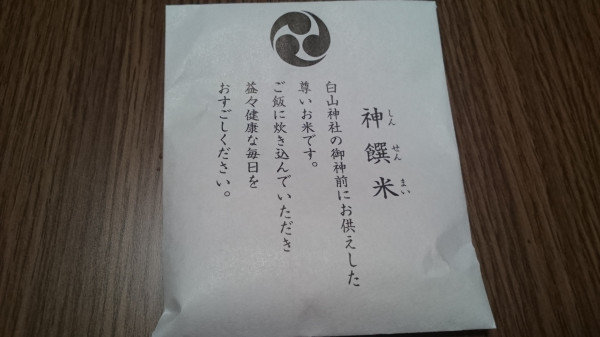 神饌米
しんせんまい
白山神社の御神前にお供えした
尊いお米です。
ご飯に炊き込んでいただき
益々健康な毎日を
おすごしください。